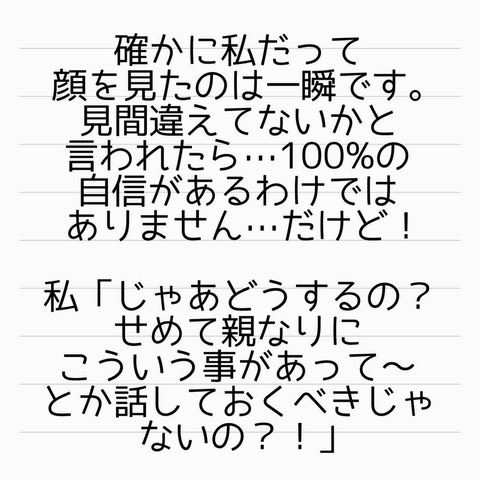 確かに私だって
顔を見たのは一瞬です。
見間違えてないかと
言われたら…100%の
自信があるわけでは
ありません…だけど！
私「じゃあどうするの？
せめて親なりに
こういう事があって〜
とか話しておくべきじゃ
ないの？！」